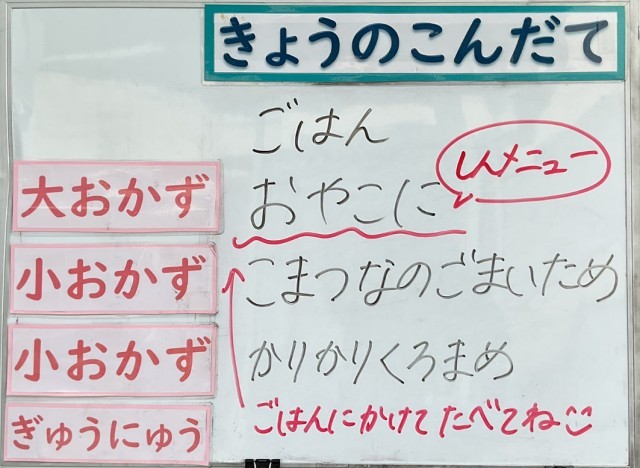 きょうのこんだて
ごはん
大おかず おやこに しんメニュー
小おかず こまつなのごまいため
小おかず かりかりくろまめ
ぎゅうにゅう ごはんにかけてたべてね